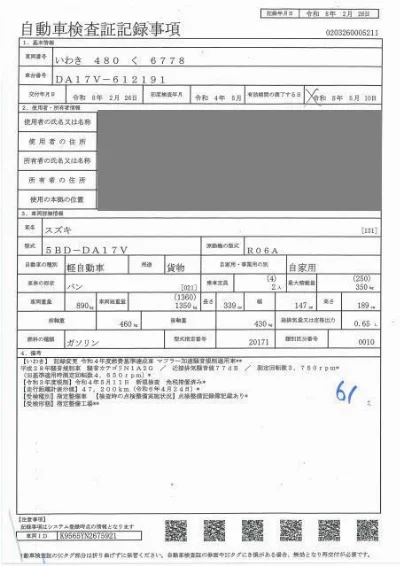 記録年月日 令和 8年 2月 26日
自動車検査証記録事項
0203260005211
1. 基本情報
車両番号 いわき 480 く 6778
車台番号 DA17V-612191
交付年月日 令和 8年 2月 26日 初度検査年月 令和 4年 5月 有効期間の満了する日 令和 8年 5月 10日
2. 使用者・所有者情報
使用者の氏名又は名称
使用者の住所
所有者の氏名又は名称
所有者の住所
使用の本拠の位置
3. 車両詳細情報
車名 スズキ [131]
型式 5BD-DA17V 原動機の型式 R06A
自動車の種別 軽自動車 用途 貨物 自家用・事業用の別 自家用
車体の形状 バン [021] 乗車定員 (4) 2人 最大積載量 (250) 350kg
車両重量 890kg 車両総重量 (1360) 1350kg 長さ 339cm 幅 147cm 高さ 189cm
前軸重 460kg 後軸重 430kg 総排気量又は定格出力 0.65L
燃料の種類 ガソリン 型式指定番号 20171 類別区分番号 0010
4. 備考
【いわき】 記録変更 令和4年度燃費基準達成車 マフラー加速騒音規制適用車**
平成28年騒音規制車 騒音カテゴリN1A2G / 近接排気騒音値77dB / 測定回転数3,750rpm**
(旧基準適用時測定回転数4,650rpm)*
令和4年5月11日 新規検査
【走行距離計表示値】47,200km(令和6年4月24日)*
【受検種別】指定整備車 【検査時の点検整備実施状況】点検整備記録簿記載あり*
【受検形態】指定整備工場**
61
【注意事項】
記録事項はシステム登録時点の情報となります
車両ID K9565YN2675921
自動車検査証のICタグ部分は折り曲げずに保管ください。自動車検査証の券面やICタグにき損がある場合、無効となり再交付が必要です。